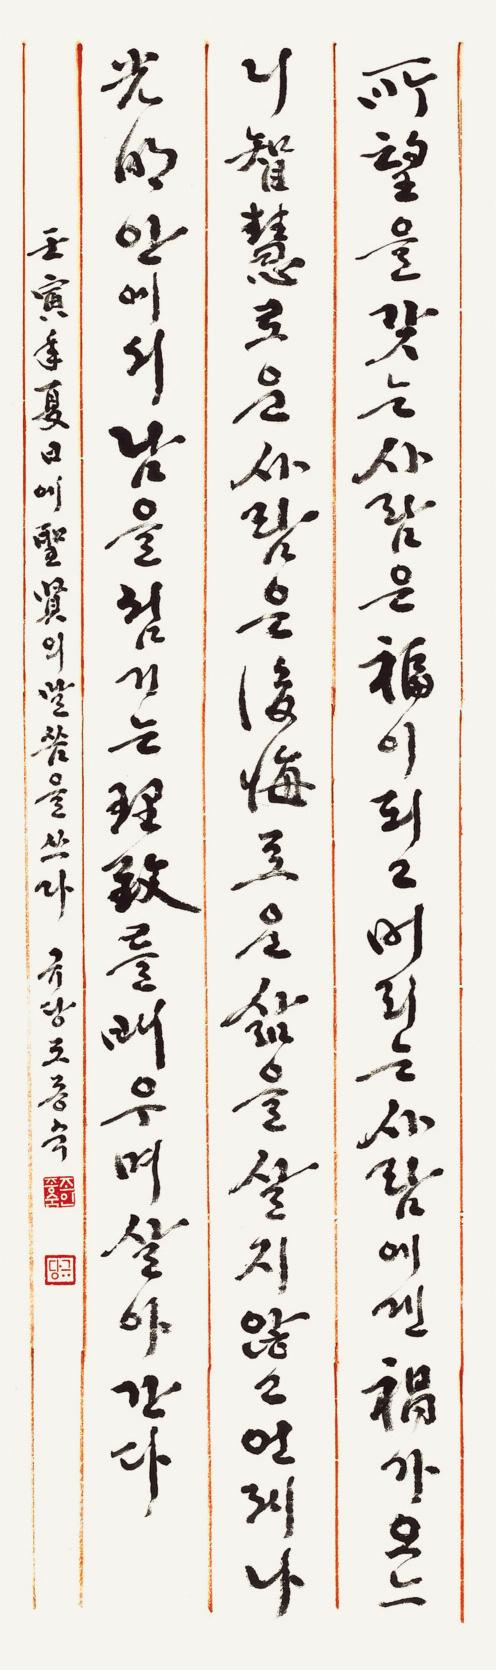 所望을 갖는 사람은 福이 되고 버리는 사람에겐 禍가 오느
니 智慧로운 사람은 後悔로운 삶을 살지 않고 언제나
光明 안에서 남을 섬기는 理致를 배우며 살아간다
壬寅年 夏日에 聖賢의 말씀을 쓰다 규당 조종숙